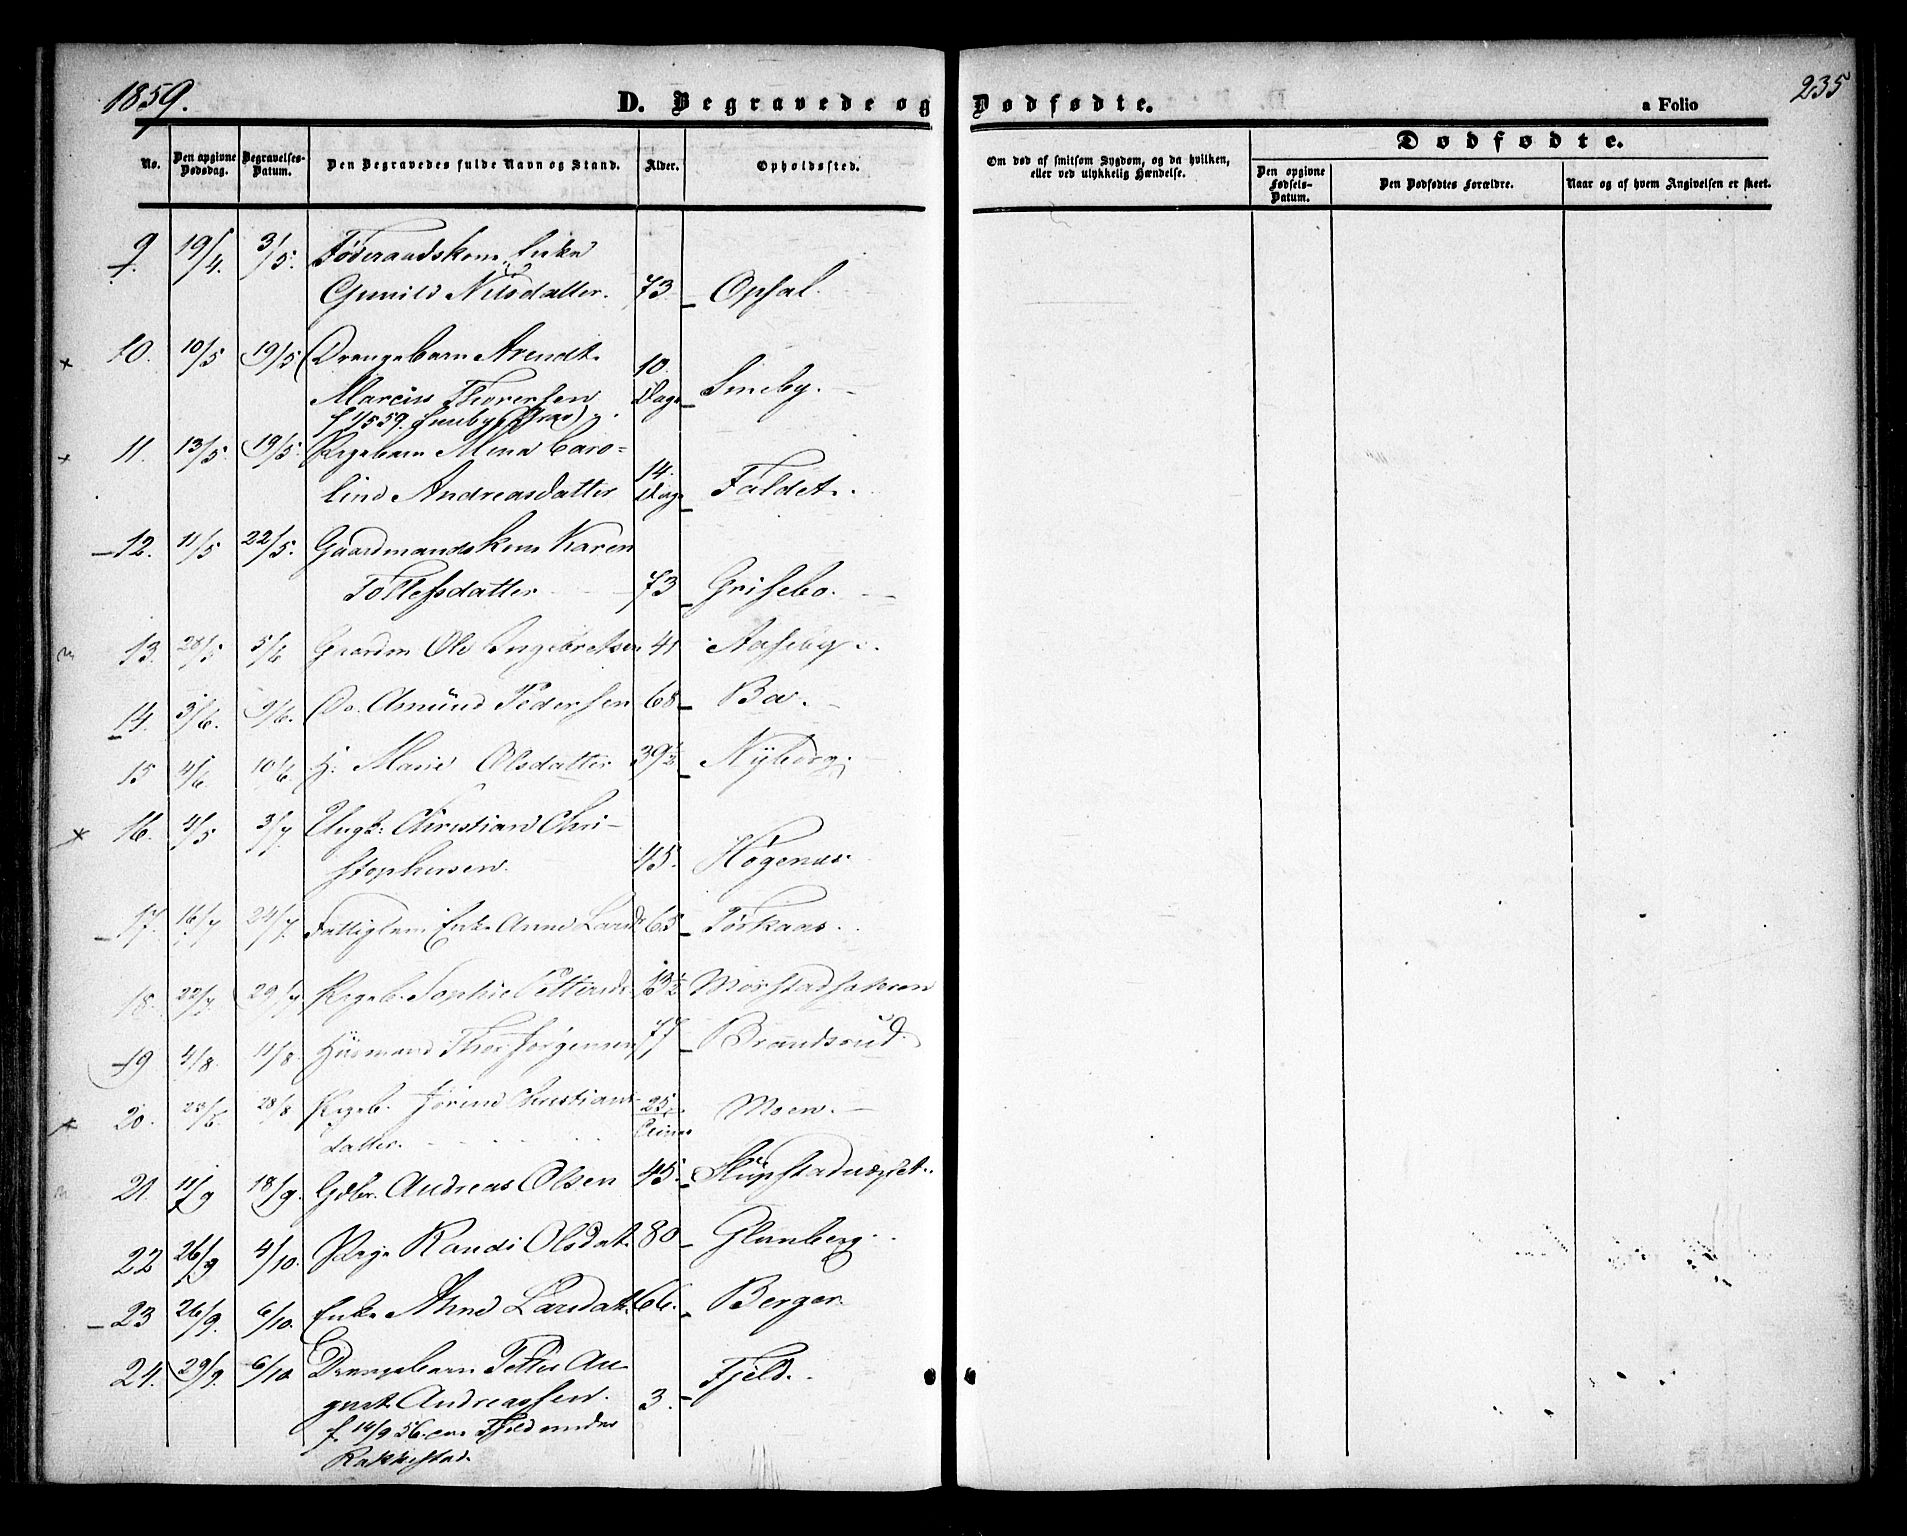 1859.
235
D. Begravede og Dødfødte.
a Folio
Dødfødte.
No.
Den opgivne Dødsdag.
Begravelses-Datum.
Den Begravedes fulde Navn og Stand.
Alder.
Opholdssted.
Om død af smitsom Sygdom, og da hvilken, eller ved ulykkelig Hændelse.
Den opgivne Fødsels-Datum.
Den Dødfødtes Forældre.
Naar og af hvem Angivelsen er skeet.
9. 19/4. 3/5. Føderaadskone Enke
Gunild Nilsdatter. 73 Opsal.
10. 10/5 19/5 Drengebarn Arendt
Marcius Thoresen 10 Dage
11. 13/5. 19/5. Pigebarn Mina Caro=
line Andreasdatter 14 Dage Faldet.
12. 11/5 22/5. Gaardmandskone Karen
Tollefsdatter 73 Grisebo.
13. 28/5 5/6 Gaardm Ole Ingebretsen 41
14. 3/6. 9/6. Do. Amund Pedersen 68 Bø.
15 4/6 10/6. Marie Olsdatter 39½ Nyborg.
16. 4/5 3/7. Ungk: Christian Chri-
stophersen. 45. Høgenæs.
17. 16/7 24/7. Fattiglem Enke Anne Larsd. 65 Torkaas.
18. 22/7 29/7 Pigeb. Sophie 13½
19 4/8. 11/8. Husmand Thor Jørgensen 77 Brandsrud.
20. 28/8 Pigeb. Christians
datter. 25 Moen.
21. 11/9 18/9. Andreas Olsen 45.
22 26/9 4/10. Pige Randi Olsdat. 80
23 26/9. 6/10. Enke Anne Larsdat. 66. Berger.
24. 29/9. 6/10 Drengebarn Petter Au-
gust Andreassen. 3. Fjeld.
f. 14/9 56. Fjeld under
Rakkestad.